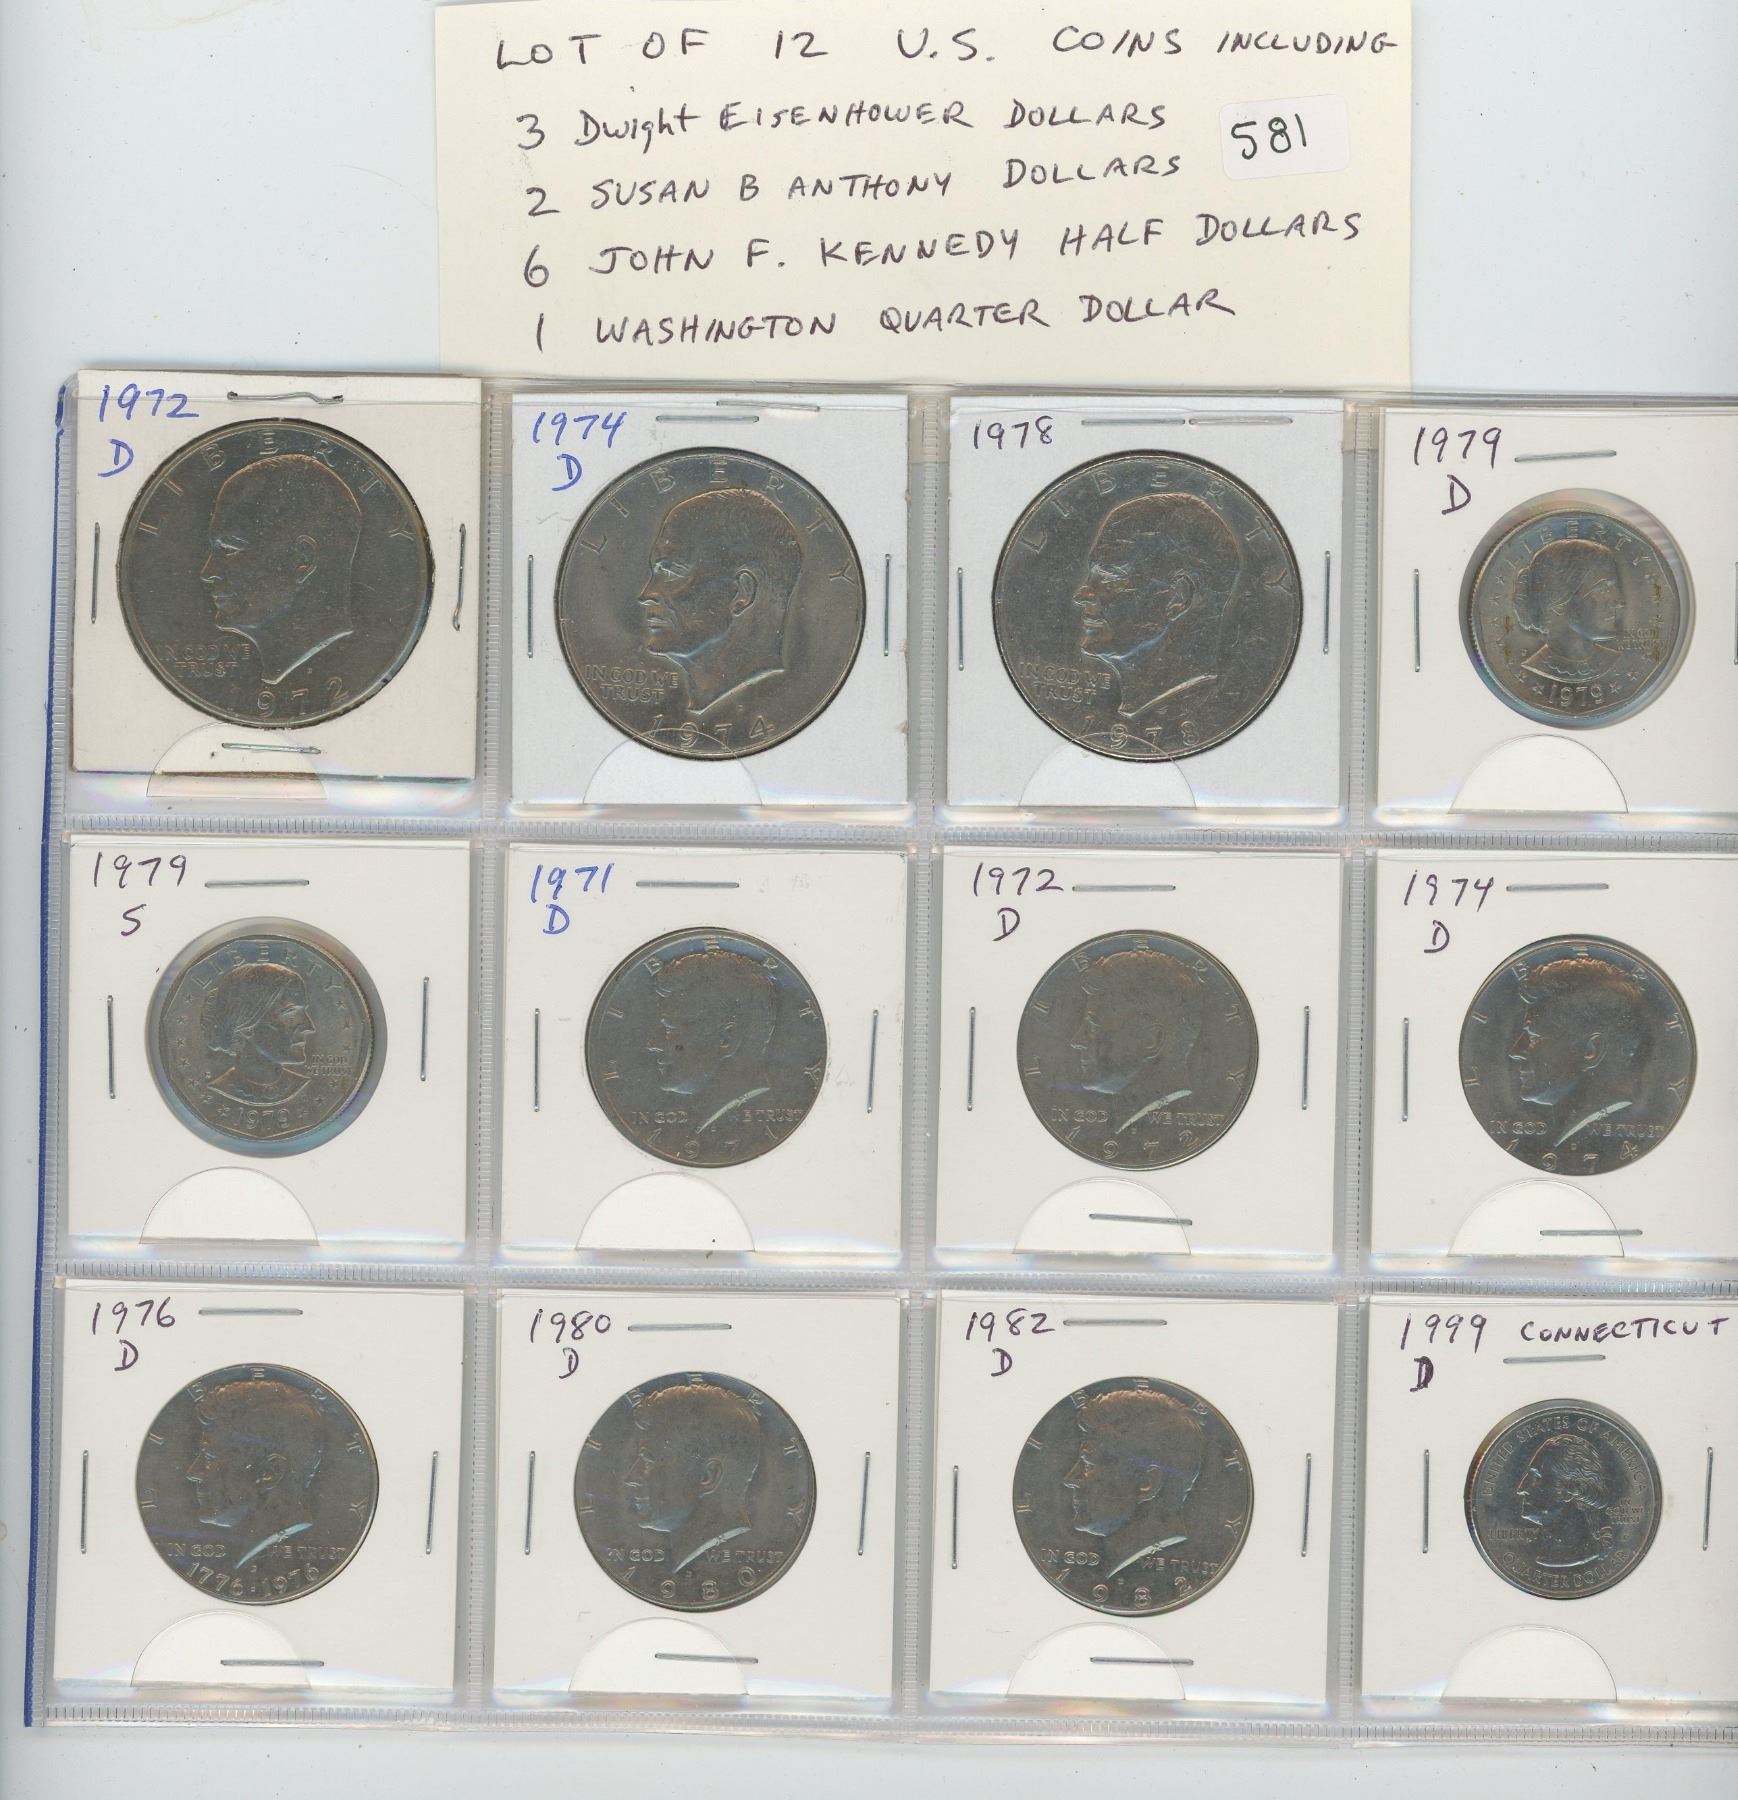 LOT OF 12 U.S. COINS INCLUDING
3 Dwight EISENHOWER DOLLARS
581
2 SUSAN B ANTHONY DOLLARS
6 JOHN F. KENNEDY HALF DOLLARS
1 WASHINGTON QUARTER DOLLAR
1972
D
LIBERTY
IN GOD WE
TRUST
1972
1974
D
LIBERTY
IN GOD WE
TRUST
1974
1978
LIBERTY
IN GOD WE
TRUST
1978
1979
D
LIBERTY
IN GOD
WE TRUST
1979
1979
S
LIBERTY
IN GOD
WE TRUST
1979
1971
D
LIBERTY
IN GOD WE TRUST
1971
1972
D
LIBERTY
IN GOD WE TRUST
1972
1974
D
LIBERTY
IN GOD WE TRUST
1974
1976
D
LIBERTY
IN GOD WE TRUST
1776·1976
1980
D
LIBERTY
IN GOD WE TRUST
1980
1982
D
LIBERTY
IN GOD WE TRUST
1982
1999 CONNECTICUT
D
UNITED STATES OF AMERICA
LIBERTY
IN
GOD WE
TRUST
QUARTER DOLLAR